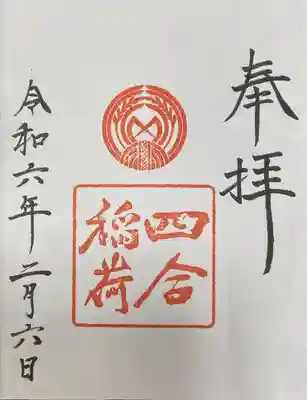 奉拝
四合
稲荷
令和六年二月六日